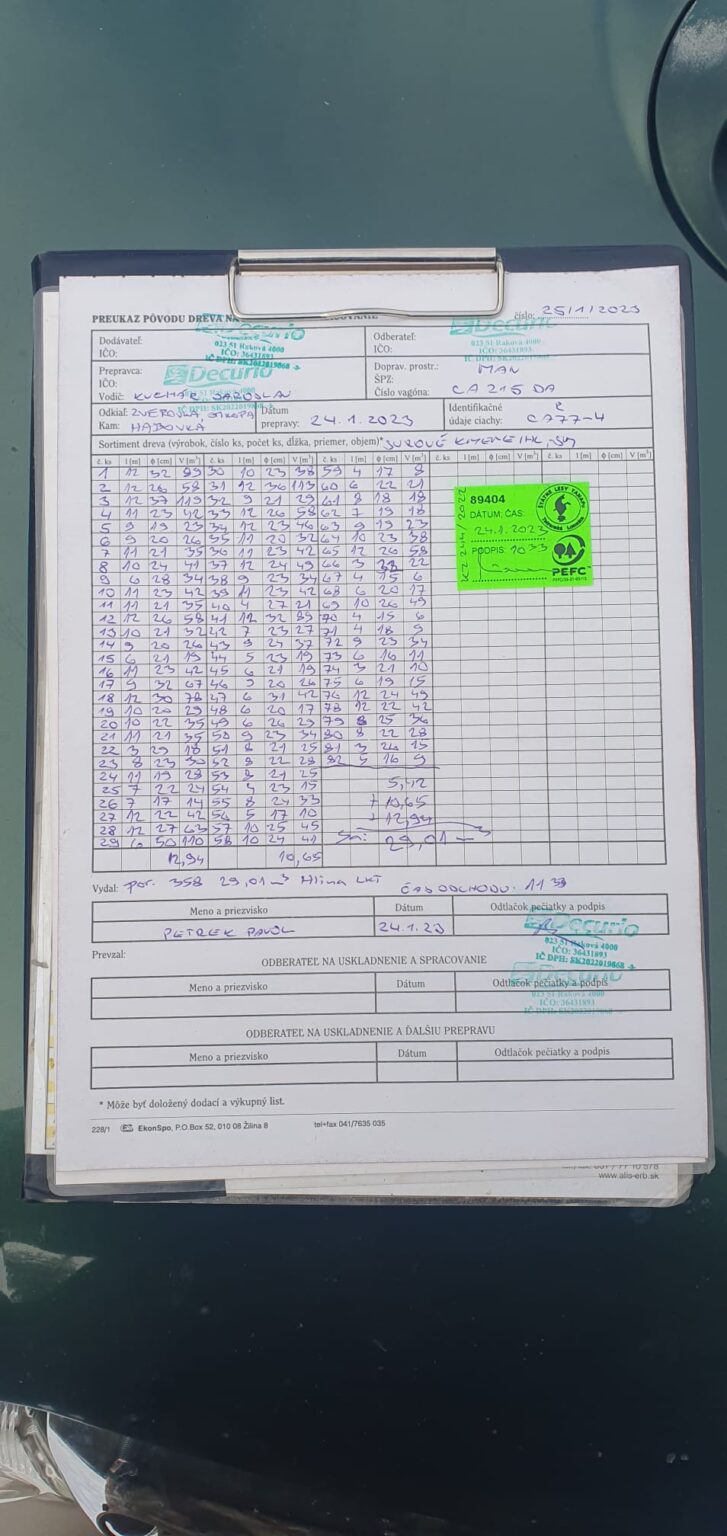 PREUKAZ PÔVODU DREVA NA
číslo: 25/1/2023
Decurio
023 51 Raková 4000
IČO: 36431893
IČ DPH: SK2022019868
Decurio
023 51 Raková 4000
IČO: 36431893
Dodávateľ:
IČO:
Odberateľ:
IČO:
Prepravca:
IČO:
Vodič: KUCHÁR JAROSLAV
Decurio
Raková 4000
Doprav. prostr.: MAN
ŠPZ:
Číslo vagóna: CA 215 DA
Odkiaľ: ZVEROVKA
Kam: HABOVKA
Dátum prepravy: 24.1.2023
Identifikačné údaje ciachy: CA77-4
Sortiment dreva (výrobok, číslo ks, počet ks, dĺžka, priemer, objem)* SUROVÉ KMENE IHL.
č. ks l [m] ϕ [cm] V [m³] č. ks l [m] ϕ [cm] V [m³] č. ks l [m] ϕ [cm] V [m³] č. ks l [m] ϕ [cm] V [m³] č. ks l [m] ϕ [cm] V [m³]
1 12 32 89 30 10 23 38 59 4 17 8
2 12 26 58 31 12 36 113 60 6 22 21
3 12 37 119 32 9 21 29 61 8 18 18
4 11 23 42 33 12 26 58 62 7 19 18
5 9 19 23 34 12 23 46 63 9 19 23
6 9 20 26 35 11 20 32 64 10 23 38
7 11 21 35 36 11 23 42 65 12 26 58
8 10 24 41 37 12 24 49 66 3 22
9 6 28 34 38 9 23 34 67 4 15 6
10 11 23 42 39 11 23 42 68 6 20 17
11 11 21 35 40 4 27 21 69 10 26 49
12 12 26 58 41 12 32 89 70 4 15 6
13 10 21 32 42 7 23 27 71 4 18 9
14 9 20 26 43 9 24 37 72 9 23 34
15 6 21 19 44 5 23 19 73 6 16 11
16 11 23 42 45 6 21 19 74 3 21 10
17 9 32 67 46 9 20 26 75 6 19 15
18 12 30 78 47 6 31 42 76 12 24 49
19 10 20 29 48 6 20 17 78 12 22 42
20 10 22 35 49 6 26 29 79 8 25 36
21 11 21 35 50 9 23 34 80 8 22 28
22 3 29 18 51 8 21 25 81 3 26 15
23 8 23 30 52 8 22 28 82 5 16 9
24 11 19 28 53 8 21 25
25 7 22 24 54 4 23 15 5,42
26 7 17 14 55 8 24 33 + 10,65
27 12 22 42 56 5 17 10 + 12,94
28 12 27 63 57 10 25 45
29 6 50 110 58 10 24 41 29,01
12,94 10,65
89404
DÁTUM, ČAS:
24.1.2023
PODPIS: 10 33
ŠTÁTNE LESY TANAPU
Tatranská Lomnica
PEFC
KZ 244/2022
Vydal: por. 358 29,01 m3 Hlina LKT ČAS ODCHODU: 11 33
Meno a priezvisko Dátum Odtlačok pečiatky a podpis
PETREK PAVOL 24.1.23
Decurio
023 51 Raková 4000
IČO: 36431893
IČ DPH: SK2022019868
Prevzal:
ODBERATEĽ NA USKLADNENIE A SPRACOVANIE
Meno a priezvisko Dátum Odtlačok pečiatky a podpis
Decurio
023 51 Raková 4000
IČO: 36431893
IČ DPH: SK2022019868
ODBERATEĽ NA USKLADNENIE A ĎALŠIU PREPRAVU
Meno a priezvisko Dátum Odtlačok pečiatky a podpis
* Môže byť doložený dodací a výkupný list.
228/1 EkonSpo, P.O.Box 52, 010 08 Žilina 8 tel+fax 041/7635 035
www.alis-erb.sk